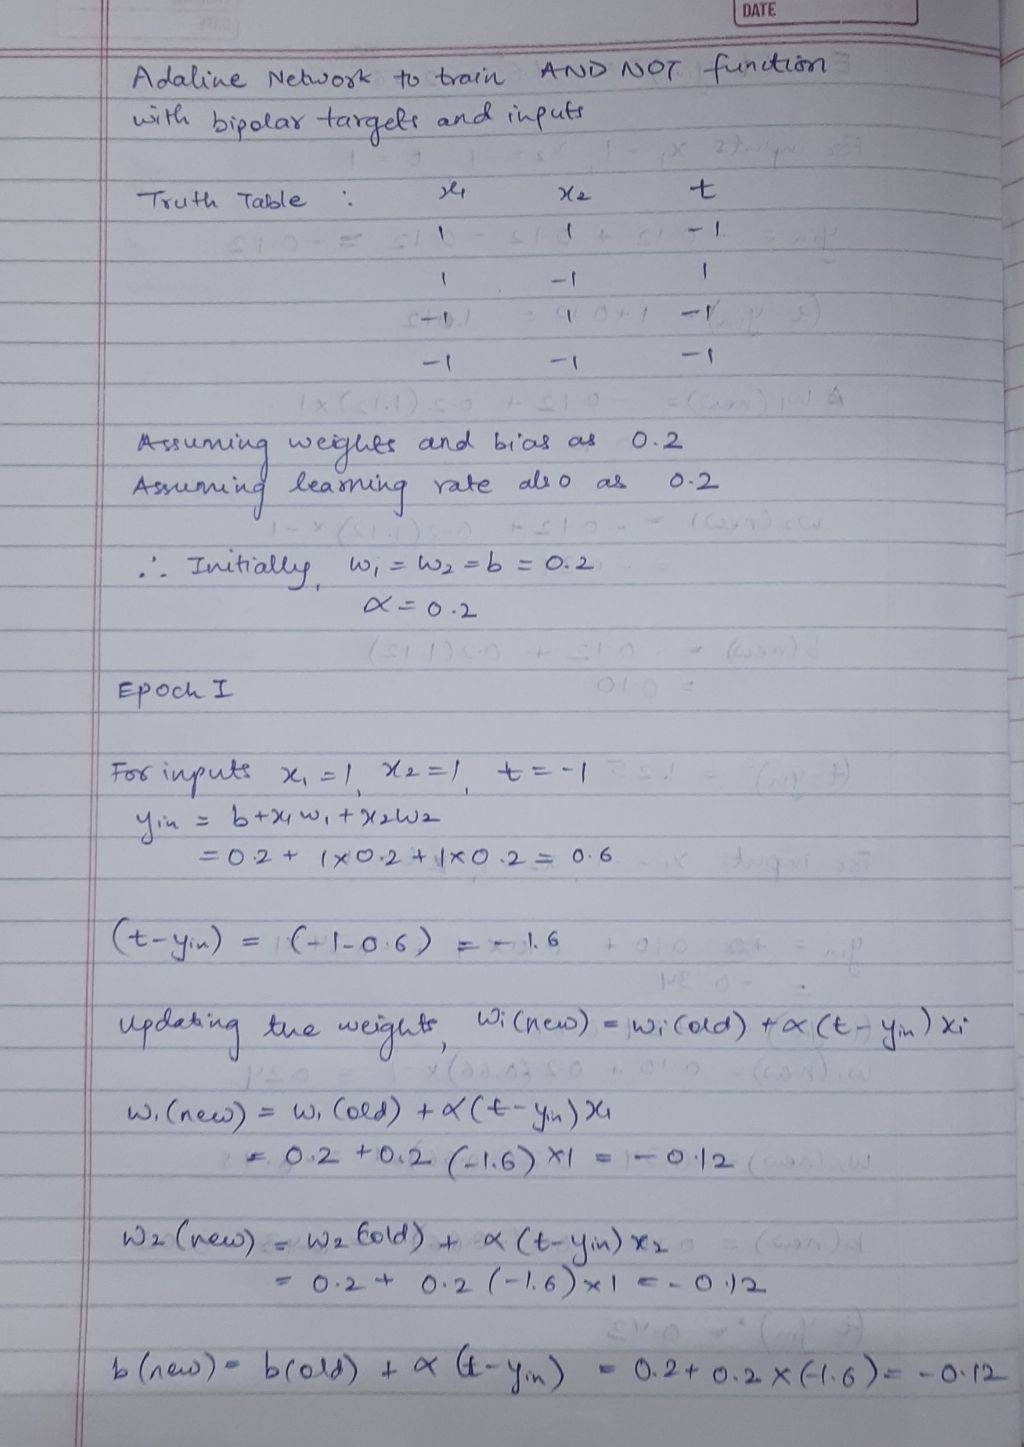 DATE
Adaline Network to train AND NOT function
with bipolar targets and inputs
Truth Table : x₁ x₂ t
1 1 -1
1 -1 1
-1 1 -1
-1 -1 -1
Assuming weights and bias as 0.2
Assuming learning rate also as 0.2
∴ Initially, w₁ = w₂ = b = 0.2
α = 0.2
Epoch I
For inputs x₁ = 1, x₂ = 1, t = -1
yin = b + x₁w₁ + x₂w₂
= 0.2 + 1×0.2 + 1×0.2 = 0.6
(t-yin) = (-1-0.6) = -1.6
Updating the weights, wi(new) = wi(old) + α(t-yin)xi
w₁(new) = w₁(old) + α(t-yin)x₁
= 0.2 + 0.2 (-1.6) ×1 = -0.12
w₂(new) = w₂(old) + α(t-yin)x₂
= 0.2 + 0.2 (-1.6)×1 = -0.12
b(new) = b(old) + α(t-yin) = 0.2 + 0.2×(-1.6) = -0.12